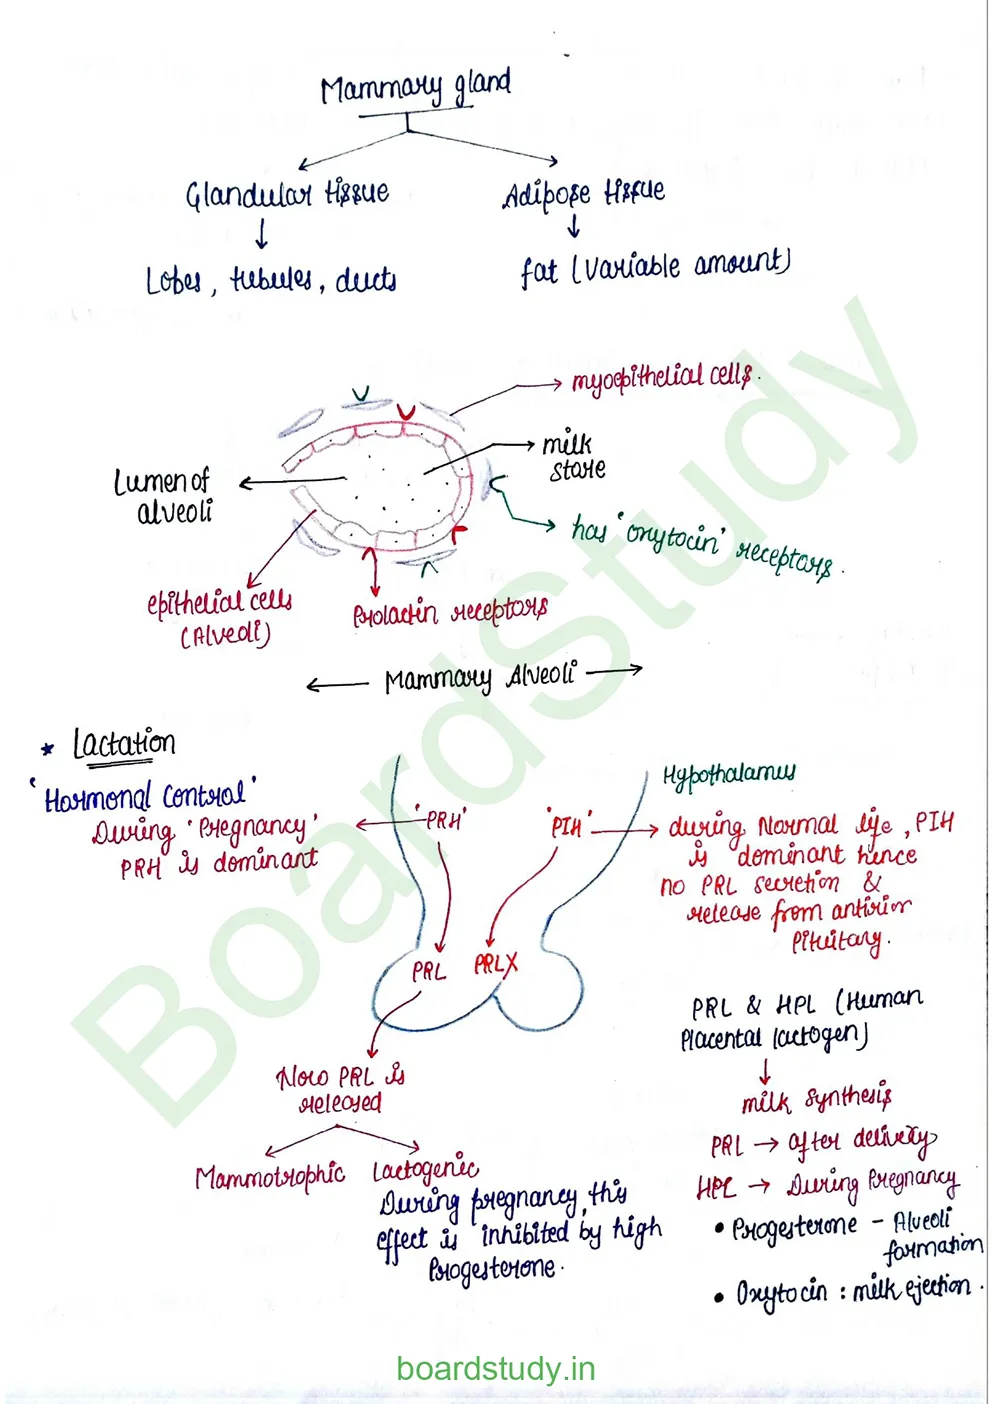 Mammary gland
Glandular tissue
Adipose tissue
Lobes, tubules, ducts
fat (variable amount)
myoepithelial cells.
milk
store
Lumen of
alveoli
has 'oxytocin' receptors.
epithelial cells
(Alveoli)
Prolactin receptors
Mammary Alveoli
* Lactation
'Hormonal Control'
During 'Pregnancy'
PRH is dominant
'PRH'
'PIH'
Hypothalamus
during Normal life, PIH
is dominant hence
no PRL secretion &
release from antirior
Pituitary.
PRL
PRLX
PRL & HPL (Human
Placental lactogen)
milk synthesis
PRL → after delivery
HPL → During Pregnancy
• Progesterone - Alveoli
formation
• Oxytocin : milk ejection.
Now PRL is
released
Mammotrophic
Lactogenic
During pregnancy, this
effect is inhibited by high
Progesterone.
BoardStudy
boardstudy.in